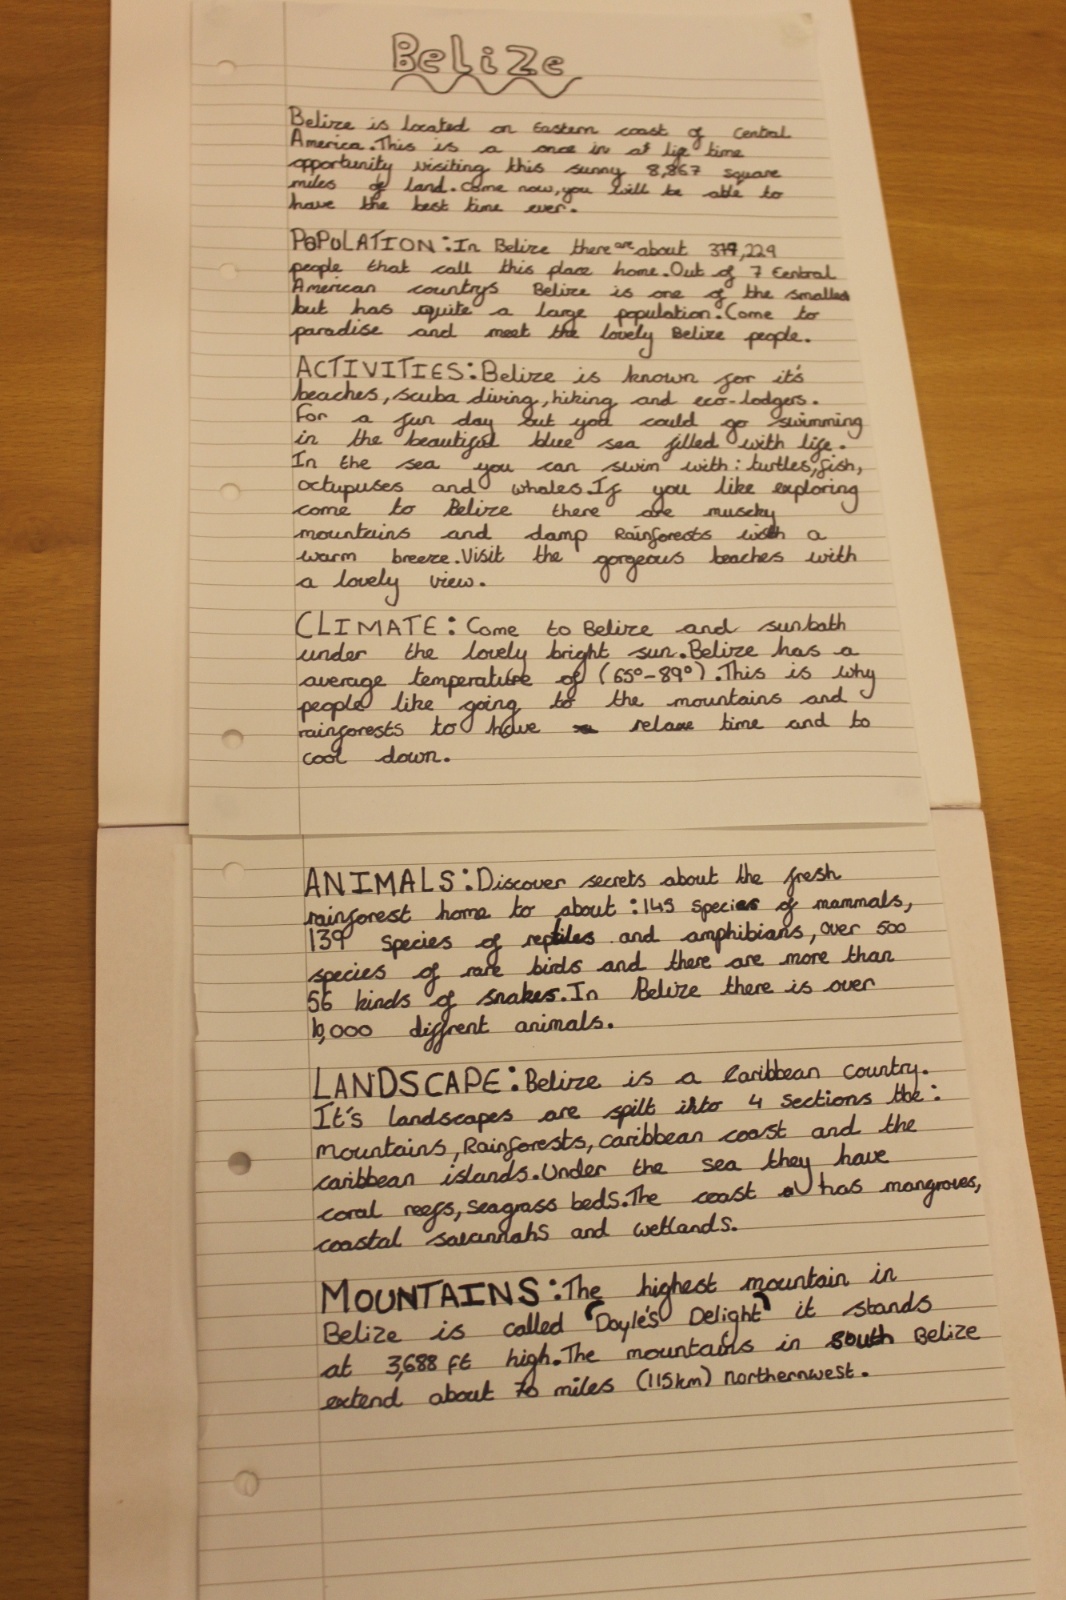 Belize
Belize is located on Eastern coast of Central
America.This is a once in at life time
opportunity visiting this sunny 8,867 square
miles of land.Come now,you will be able to
have the best time ever.
POPULATION:In Belize there are about 374,229
people that call this place home.Out of 7 Central
American countrys Belize is one of the smalles
but has quite a large population.Come to
paradise and meet the lovely Belize people.
ACTIVITIES:Belize is known for it's
beaches,scuba diving,hiking and eco-lodgers.
For a fun day out you could go swimming
in the beautiful blue sea filled with life.
In the sea you can swim with:turtles,fish,
octupuses and whales.If you like exploring
come to Belize there are muscky
mountains and damp Rainforests with a
warm breeze.Visit the gorgeous beaches with
a lovely view.
CLIMATE:Come to Belize and sunbath
under the lovely bright sun.Belize has a
average temperature of (65°-89°).This is why
people like going to the mountains and
rainforests to have relaxe time and to
cool down.
ANIMALS:Discover secrets about the fresh
rainforest home to about:145 species of mammals,
139 species of reptiles and amphibians,over 500
species of rare birds and there are more than
56 kinds of snakes.In Belize there is over
10,000 diffrent animals.
LANDSCAPE:Belize is a Caribbean country.
It's landscapes are spilt into 4 sections the:
mountains,Rainforests,caribbean coast and the
caribbean islands.Under the sea they have
coral reefs,seagrass beds.The coast has mangroves,
coastal savannahs and wetlands.
MOUNTAINS:The highest mountain in
Belize is called "Doyle's Delight" it stands
at 3,688 ft high.The mountains in south Belize
extend about 70 miles (115km) northernwest.